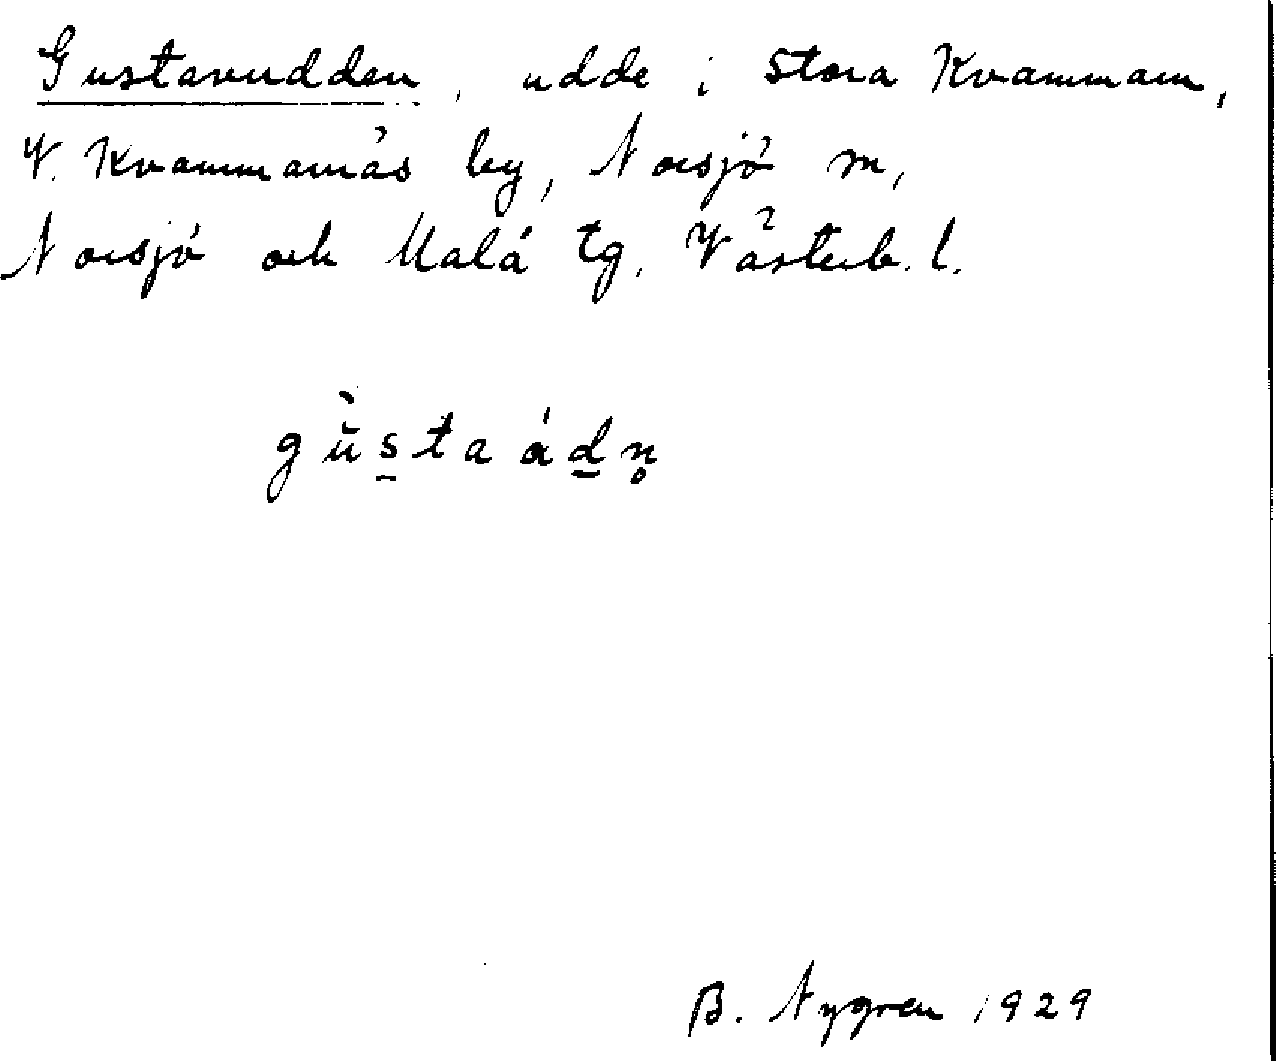 Gustavudden, udde i Stora Kvammarn,
V. Kvammarnäs by, Norsjö sn,
Norsjö och Malå tg. Västerb. l.
gùstaádn̥
B. Nygren 1929